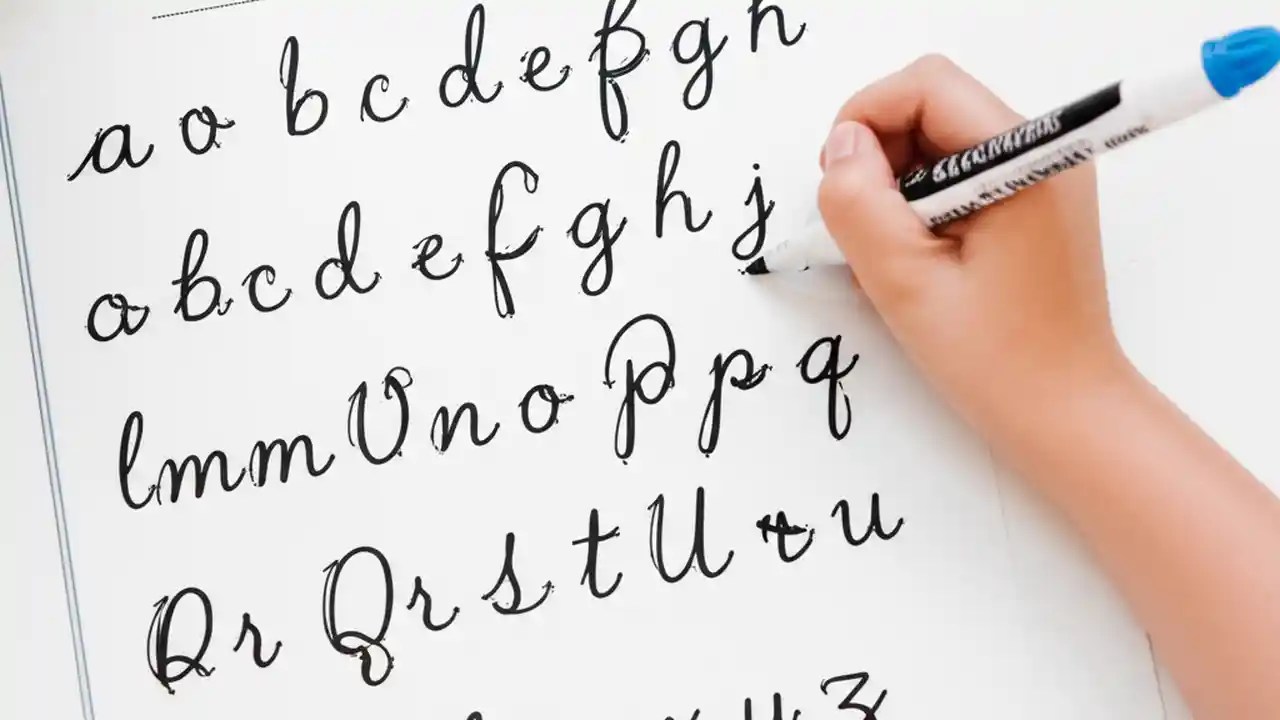 a o b c d e f g h
a b c d e f g h j
l m m U n o p p q
Q r Q r s t U t u
x u z